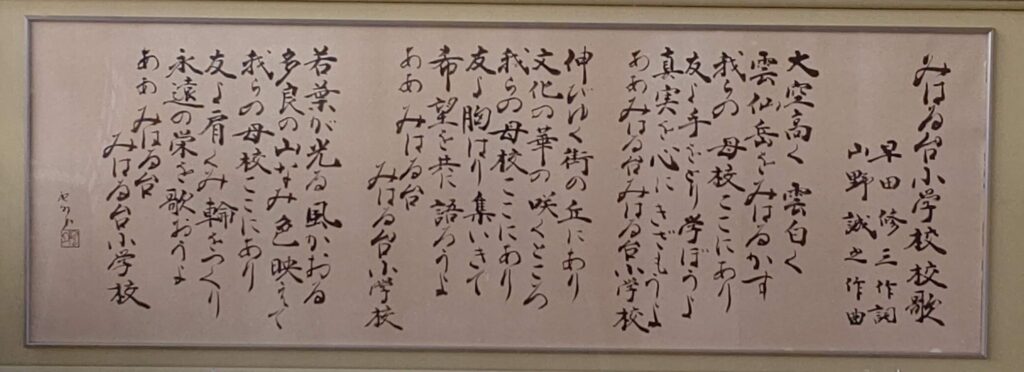 みはる台小学校校歌
早田修三作詞
山野誠之作曲
大空高く 雲白く
雲仙岳をみはるかす
我らの母校ここにあり
友よ手をとり学ぼうよ
真実を心にきざもうよ
ああみはる台みはる台小学校
伸びゆく街の丘にあり
文化の華の咲くところ
我らの母校ここにあり
友よ胸はり集いきて
希望を共に語ろうよ
ああみはる台
みはる台小学校
若葉が光る風かおる
多良の山なみ色映えて
我らの母校ここにあり
友よ肩くみ輪をつくり
永遠の栄を歌おうよ
ああみはる台
みはる台小学校